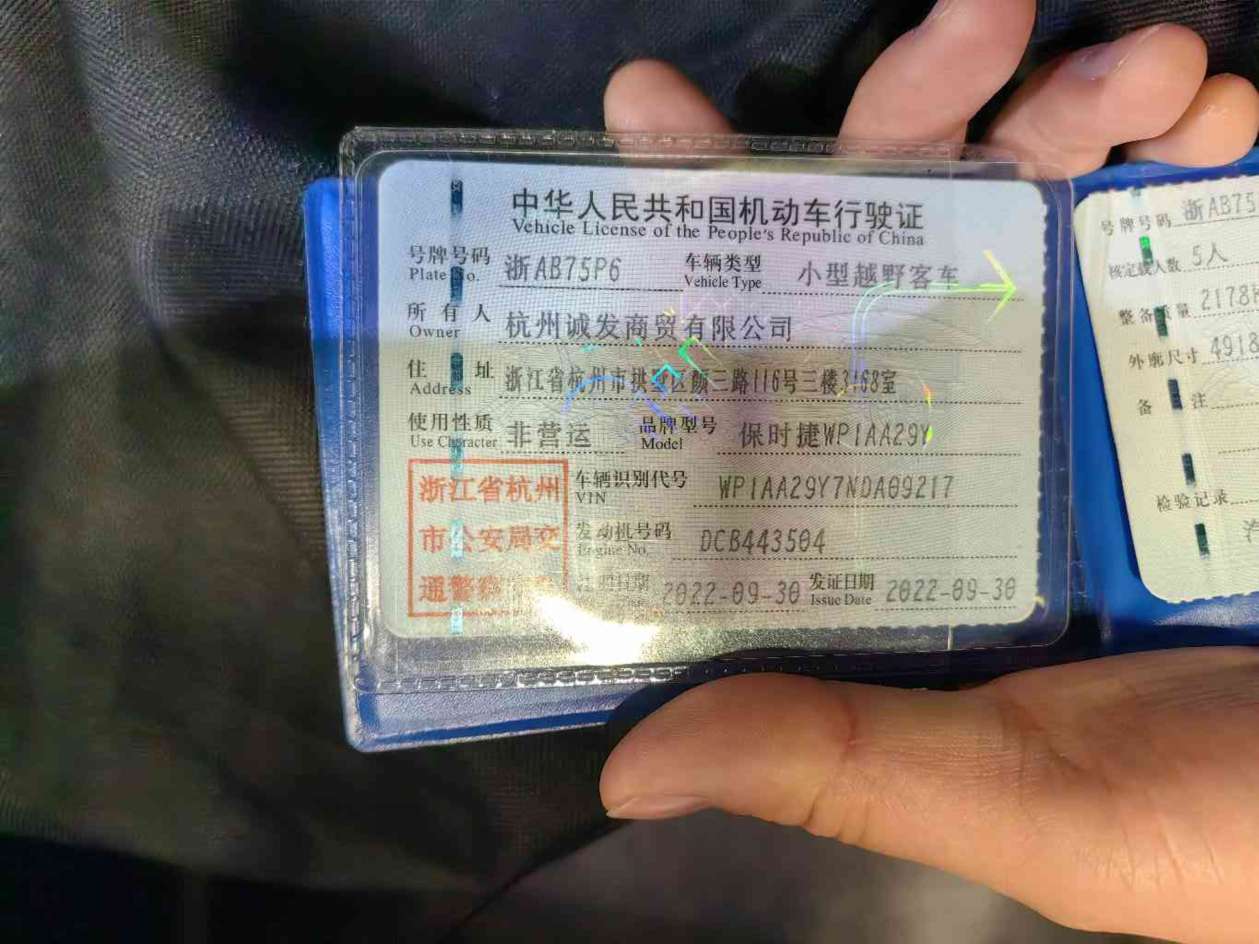 中华人民共和国机动车行驶证
Vehicle License of the People's Republic of China
号牌号码 浙AB75P6 车辆类型 小型越野客车
Plate No. Vehicle Type
所有人 杭州诚发商贸有限公司
Owner
住址 浙江省杭州市拱墅区颜三路116号三楼3168室
Address
使用性质 非营运 品牌型号 保时捷WP1AA29Y
Use Character Model
浙江省杭州
市公安局交
通警察
车辆识别代号 WP1AA29Y7NDA09217
VIN
发动机号码 DCB443504
Engine No.
注册日期 2022-09-30 发证日期 2022-09-30
Issue Date
号牌号码 浙AB75
核定载人数 5人
整备质量 2178
外廓尺寸 4918
备注
检验记录